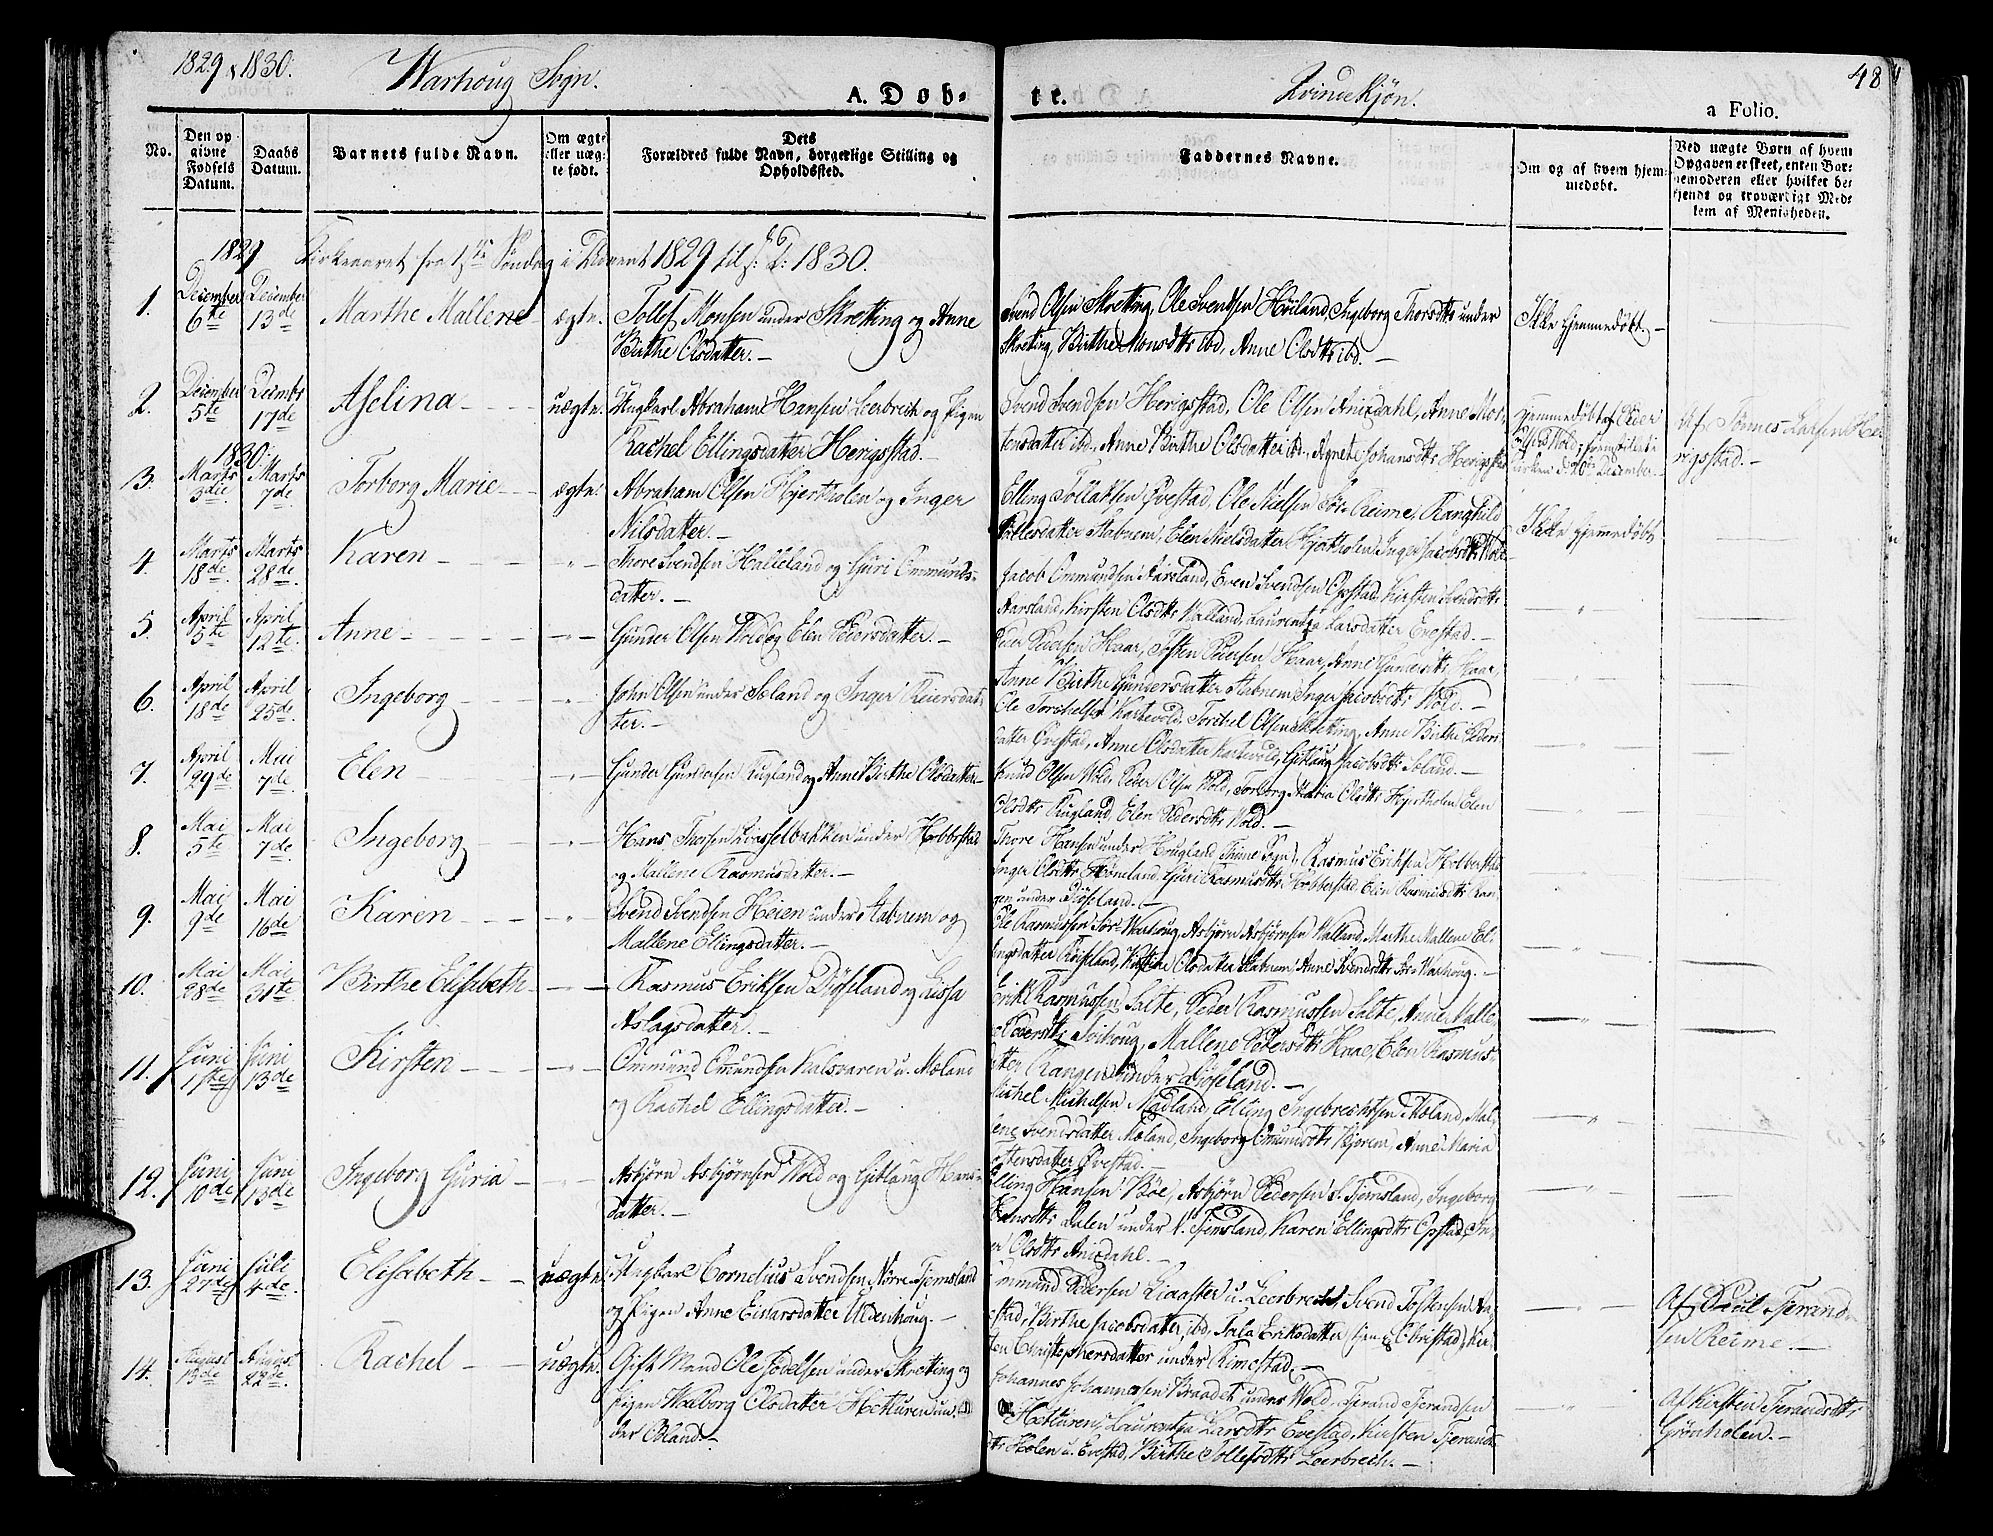 1829 & 1830.
Warhoug Sogn.
A. Døb-
te.
Qvindekjøn.
48
a Folio.
No.
Den opgivne Fødsels Datum.
Daabs Datum.
Barnets fulde Navn.
Om ægte eller uægte født.
Dets Forældres fulde Navn, borgerlige Stilling og Opholdssted.
Faddernes Navne.
Om og af hvem hjemmedøbt.
Ved uægte Børn af hvem Opgaven er skeet, enten Barnemoderen eller hvilket bekjendt og troværdigt Medlem af Menigheden.
1829 Kirkeaaret fra 1ste Søndag i Advent 1829 til s: D: 1830.
1. December 6te December 13de Marthe Mallene ægte. Tollef Monsen under Skretting og Anne
Birthe Olsdatter.
Svend Olsen Skretting, Ole Svendsen Høiland, Ingeborg Thorsdtr under
Skreting, Birthe Monsdtr ibd, Anne Olsdtr ibd.
Ikke hjemmedøbt
2. December 5te Decembr 17de Aselina uægte. Ungkarl Abraham Hansen Leerbrech og Pigen
Rachel Ellingsdatter Herigstad.
Svend Svendsen Herigstad, Ole Olsen Anisdahl, Anne Mor-
tensdatter ibd, Anne Birthe Olsdatter ibd, Agnete Johansdtr Herigstad
Hjemmedøbt af Peder
Wold
Af Tønnes Larsen He-
rigstad.
1830.
3. Marts 3die Marts 7de Torborg Marie ægte. Abraham Olsen Hjertholen og Inger
Nilsdatter.
Elling Tollaksen Øvestad, Ole Nielsen Sør-Reime, Ranghild
Stabnem, Elen Nielsdatter Hjertholen, Inger Jacobsdtr Wold
Ikke hjemmedøbt
4. Marts 18de Marts 28de Karen
Thore Svendsen Halleland og Guri Ommunds-
datter.
Jacob Ommundsen Aarsland, Even Svendsen Opstad, Kirsten Svendsdtr
Aarsland, Kirsten Olsdtr Walland, Laurentza Larsdatter Evestad.
5. April 5te April 12te Anne
Gunder Olsen Wold og Elen Pedersdatter.
Peder Pedersen Haar, Tosten Pedersen Haar, Anne Gundersdtr Haar,
Anne Birthe Gundersdatter Stabnem, Inger Jacobsdtr Wold.
6. April 18de April 25de Ingeborg
John Olsen under Søland og Inger Reiersdat-
ter.
Ole Torchelsen Kartevold, Torchel Olsen Skretting, Anne Birthe Peders-
datter Øvestad, Anne Olsdatter Kartevold, Gitlaug Jacobsdtr Søland.
7. April 29de Mai 7de Elen
Gunder Gundersen Rugland og Anne Birthe Olsdatter
Knud Olsen Wold, Peder Olsen Wold, Torborg Maria Olsdtr Hjertholen, Elen
Olsdtr Rugland, Elen Pedersdtr Wold.
8. Mai 5te Mai 7de Ingeborg
Hans Thorsen Qvasselbakken under Hobberstad
og Mallene Rasmusdatter.
Thore Hansen under Hougland Thime Sogn, Rasmus Eriksen Hobberstad
Inger Olsdtr Høneland, Guri Rasmusdtr Hobberstad, Elen Rasmusdtr Ran-
gen under Diøseland.
9. Mai 9de Mai 16de Karen
Svend Svendsen Heien under Stabnem og
Mallene Ellingsdatter.
Ole Rasmussen Sør-Warhoug, Asbjørn Asbjørnsen Walland, Marthe Mallene El-
lingsdatter Røiseland, Kirstine Olsdatter Stabnem, Anne Svendsdtr Sør-Warhoug.
10. Mai 28de Mai 31te Birthe Elisabeth
Rasmus Eriksen Diøseland og Lissa
Aslagsdatter.
Erik Rasmussen Salte, Peder Rasmussen Salte, Anne Malle-
ne Pedersdtr Tvihoug, Mallene Pedersdtr Haar, Elen Rasmus-
datter Rangen under Diøseland.
11. Juni 1ste Juni 13de Kirsten
Ommund Omundsen Kalsvaren u. Mæland
og Rachel Ellingsdatter.
Michel Michelsen Madland, Elling Ingebrechtsen Mæland, Mal-
lene Svendsdatter Mæland, Ingeborg Omundsdtr Bjoren, Anne Maria
Stensdatter Øvestad.
12. Juni 10de Juni 13de Ingeborg Guria
Asbjørn Asbjørnsen Wold og Gitlaug Hans-
datter.
Elling Hansen Bøe, Asbjørn Pedersen S. Tjemsland, Ingeborg
Hansdtr Dalen under N. Tjemsland, Karen Ellingsdtr Opstad, In-
ger Olsdtr Anisdahl.
13. Juni 27de Juli 4de Elisabeth uægte.
Ungkarl Cornelius Svendsen Nørre-Tjemsland
og Pigen Anne Einarsdatter Ueldenhoug.
Ommund Pedersen Liaaster u. Leerbrech, Svend Tostensen Aa-
estad, Birthe Jacobsdatter ibd, Sola Eriksdatter tjen: Obrestad, Kir-
sten Christophersdatter under Rimestad.
Af Poul Tjerand-
sen Reime.
14. August 13de August 22de Rachel uægte.
Gift Mand Ole Jodelsen under Skretting og
Pigen Walborg Olsdatter Hetturen un-
der Obland.
Johannes Johannesen Braadet under Wold, Tjerand Tjerandsen
Hetturen, Laurentza Larsdtr Evestad, Kirsten Tjerands-
dtr Holen u. Evestad, Birthe Tollefsdtr Leerbrech.
Af Kirsten Tjerandsdtr
Grønholen.